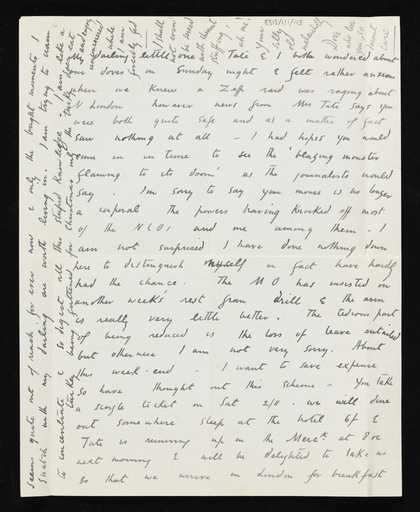 My darling little one Tate & I both wondered about
our doves on Sunday night & felt rather anxious
when we knew a Zepp raid was raging about
N London however news from Mrs Tate says you
were both quite safe and as a matter of fact
saw nothing at all – I had hopes you would
come in in time to see the 'blazing monster
flaming to its doom' as the journalists would
say. I'm sorry to say your moves is no longer
a corporal the powers having knocked off most
of the NCOs and me among them. I
am not surprised I have done nothing down
here to distinguish myself in fact have hardly
had the chance. The MO has insisted on
another weeks rest from drill & the arm
is really very little better. The tedious part
of being reduced is the loss of leave entailed
but otherwise I am not very sorry. About
this week-end – I want to save expense
so have thought out this scheme – You take
a single ticket on Sat 2/0. we will dine
out somewhere sleep at the hotel 6f &
Tate is running up in the Merc at 8 oc
next morning & will be delighted to take us
so that we arrive in London for breakfast
seems quite out of reach for ever now & only the bright moments I
snatch with my darling are worth living in. I am trying to learn
to concentrate & to digest all this stupid knowledge &
turkey being fattened for Christmas only the turkey does eat
while I am
forcibly fed
I shall
not soon
be
with
your
silly
old
Dove